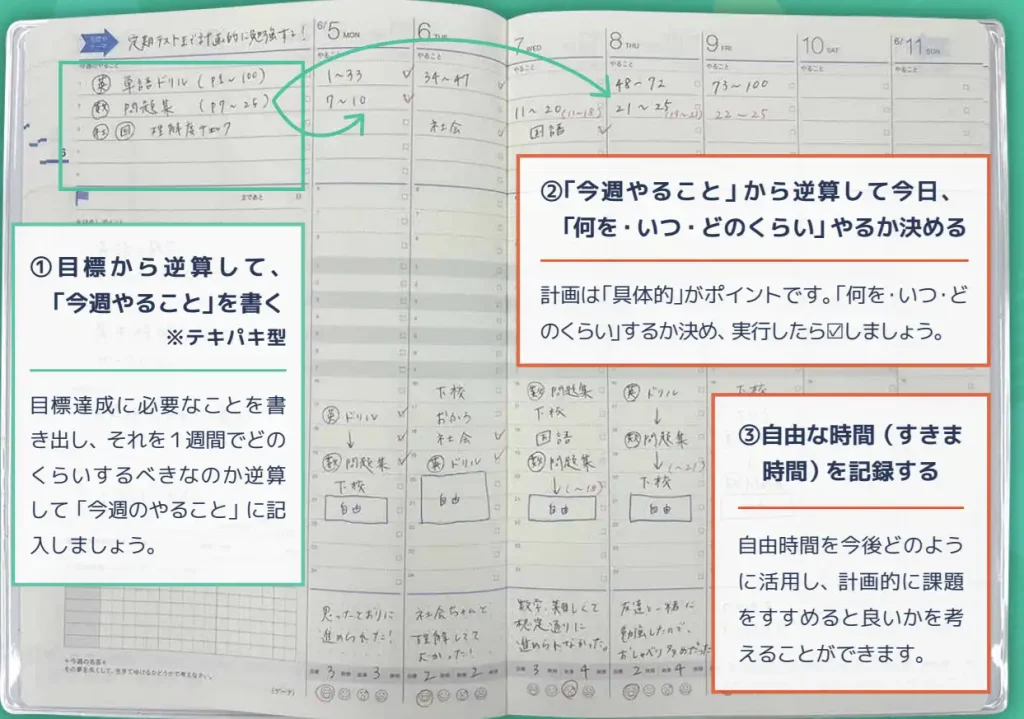 目標や
テーマ
定期テストまで計画的に勉強する!
6/5 MON
6 TUE
7 WED
8 THU
9 FRI
10 SAT
6/11 SUN
今週のやること
やること
やること
やること
やること
やること
やること
やること
英 単語ドリル (P1~100)
数 問題集 (P7~25)
社 国 理解度チェック
1~33
7~10
34~47
社会
11~20(11~18)
国語
48~72
21~25(19~21)
73~100
22~25
まであと 日
①目標から逆算して、
「今週やること」を書く
※テキパキ型
目標達成に必要なことを書
き出し、それを1週間でどの
くらいするべきなのか逆算
して「今週のやること」に記
入しましょう。
②「今週やること」から逆算して今日、
「何を・いつ・どのくらい」やるか決める
計画は「具体的」がポイントです。「何を・いつ・ど
のくらい」するか決め、実行したら☑しましょう。
③自由な時間(すきま
時間)を記録する
自由時間を今後どのよう
に活用し、計画的に課題
をすすめると良いかを考
えることができます。
英 ドリル
↓
数 問題集
下校
自由
下校
おかう
社会
英 ドリル
自由
数 問題集
下校
国語
数 問題集
↓(~18)
自由
英 ドリル
↓
数 問題集
↓(~21)
下校
自由
下校
思ったとおりに
進められた!
社会ちゃんと
理解してて
よかった!
数学、難しくて
想定通りに
進められなかった。
友達と一緒に
勉強したので、
おしゃべり多めだった
目標 3 時間 結果 3 時間
目標 2 時間 結果 2 時間
目標 3 時間 結果 4 時間
目標 2 時間 結果 4 時間
＊今週の名言＊
(ゲーテ)